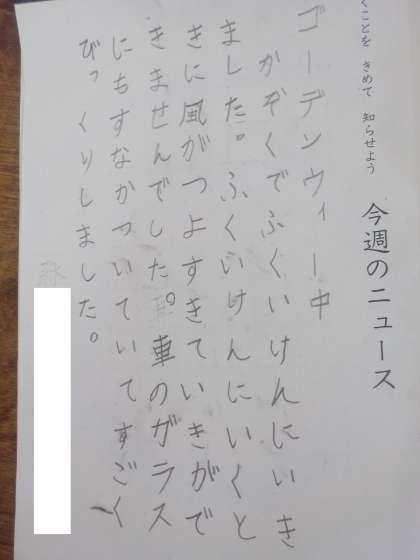 くことを きめて 知らせよう
今週のニュース
ゴーデンウィー中
かぞくでふくいけんにいき
ました。ふくいけんにいくと
きに風がつよすぎていきがで
きませんでした。車のガラス
にもすなかついていてすごく
びっくりしました。